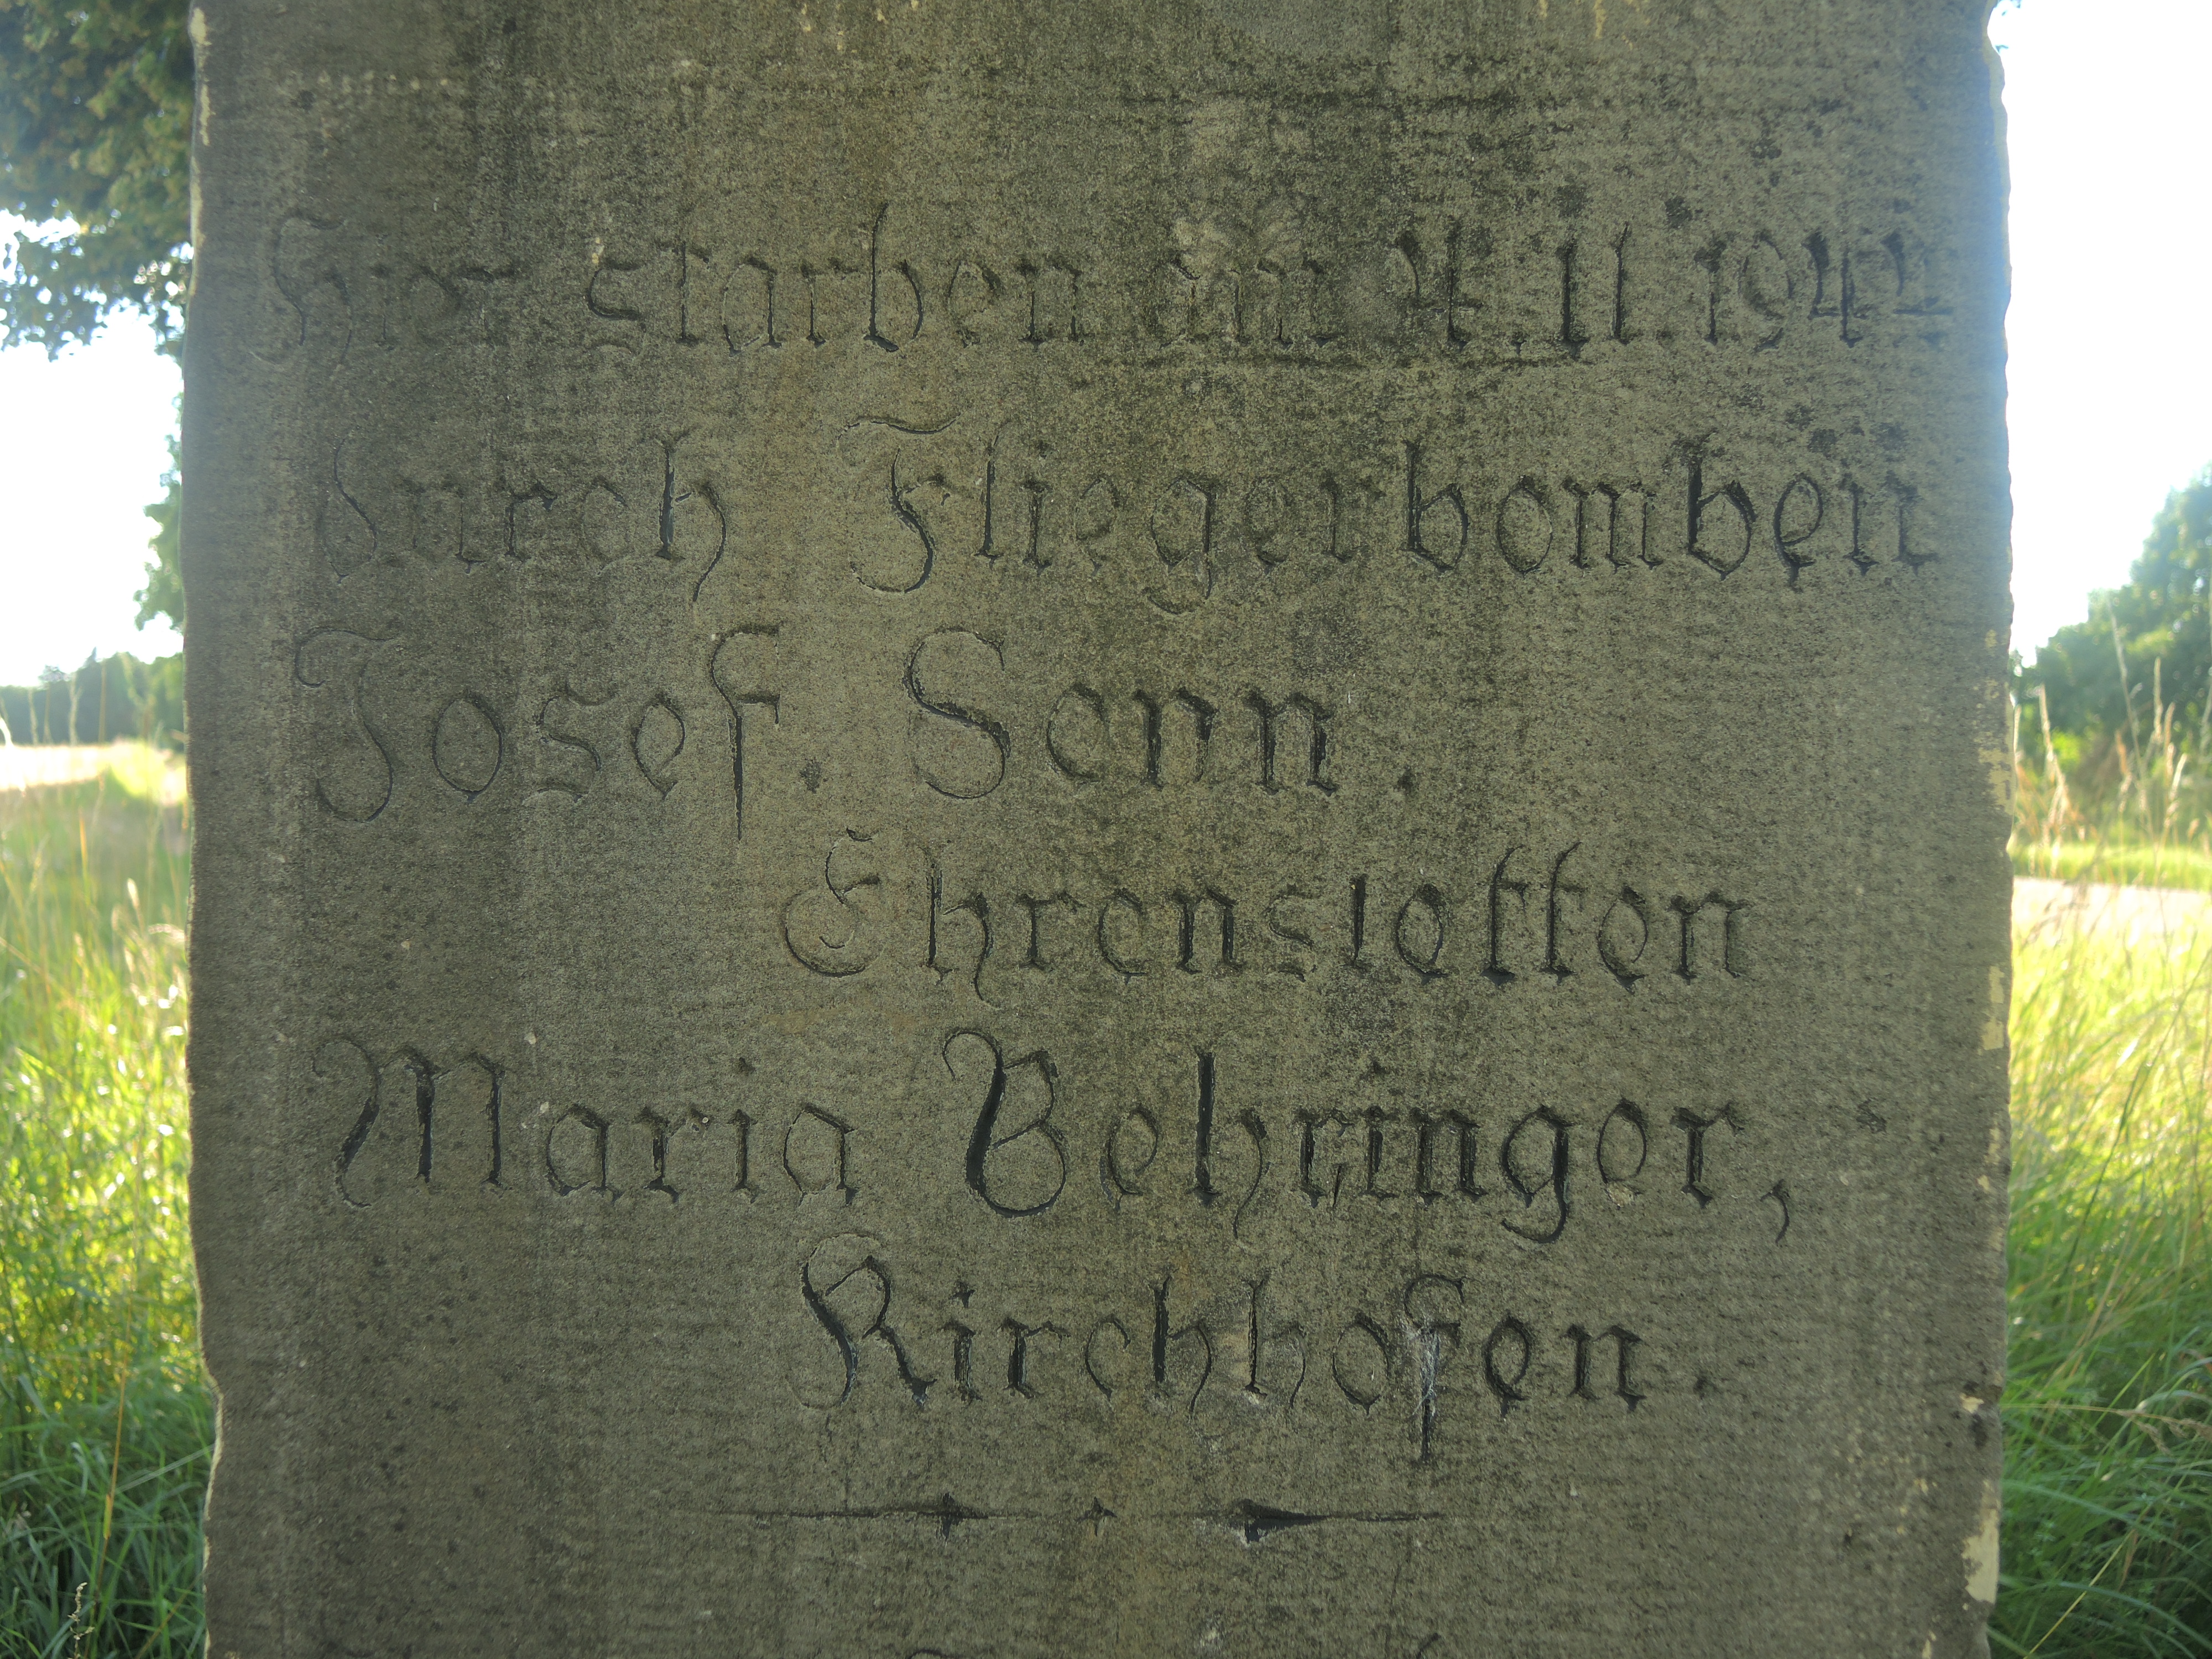 Hier starben am 4.11.1944
durch Fliegerbomben
Josef. Senn.
Ehrenstetten
Maria Behringer,
Kirchhofen.